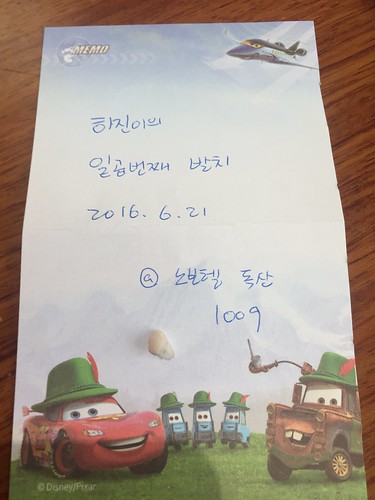 MEMO
하진이의
일곱번째 발치
2016. 6. 21
@ 노보텔 독산
1009
© Disney/Pixar